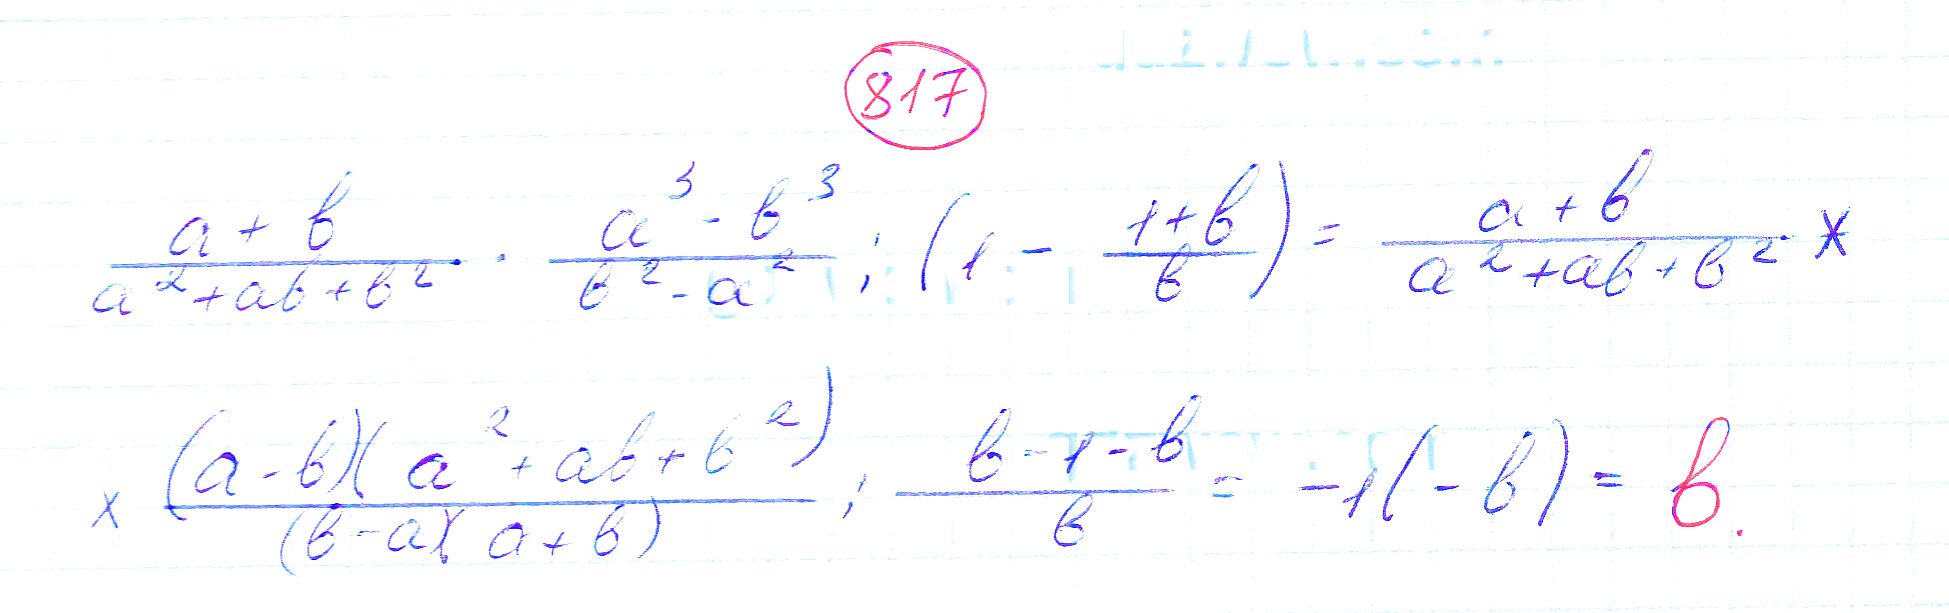 817
(a + b)/(a² + ab + b²) · (a³ - b³)/(b² - a²) : (1 - (1 + b)/b) = (a + b)/(a² + ab + b²) ×
× ((a - b)(a² + ab + b²))/((b - a)(a + b)) : (b - 1 - b)/b = -1(-b) = b.